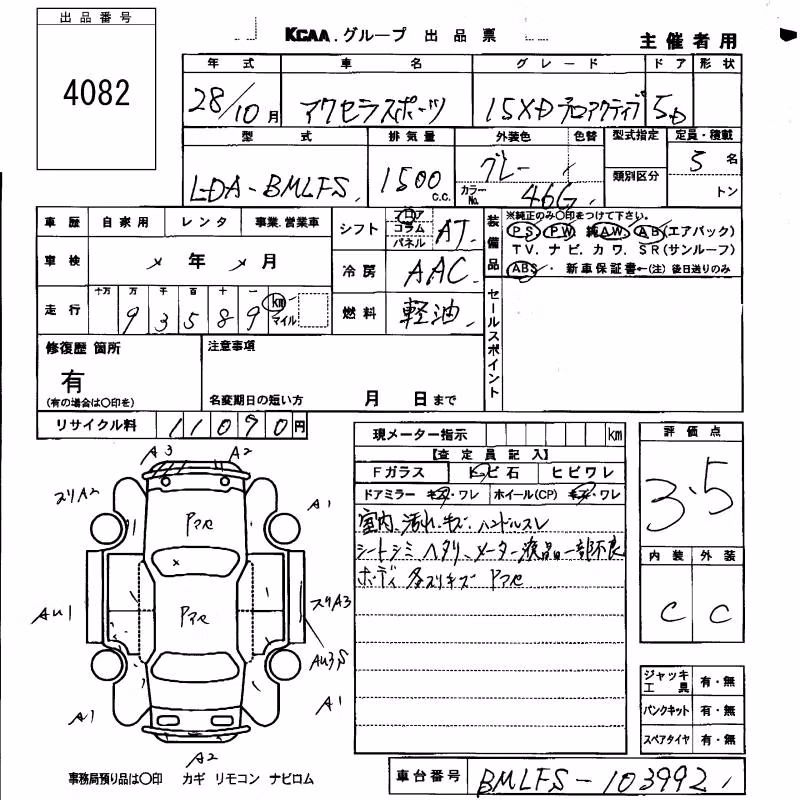 出品番号
4082
KCAA.グループ 出品票
主催者用
年式 車名 グレード ドア 形状
28/10月 アクセラスポーツ 15XDプロアクティブ 5D
型式 排気量 外装色 色替 型式指定 定員・積載
LDA-BMLFS 1500 c.c. グレー カラーNo. 46G 類別区分 5名 トン
車歴 自家用 レンタ 事業.営業車
シフト フロア コラム パネル AT
装備品 ※純正のみ○印をつけて下さい。
PS PW 純AW AB(エアバック)
TV. ナビ. カワ. SR(サンルーフ)
ABS. 新車保証書←(注)後日送りのみ
車検 年 月
冷房 AAC
走行 十万 万 千 百 十 一 93589 km マイル
燃料 軽油
セールスポイント
修復歴 箇所
有
(有の場合は○印を)
注意事項
名変期日の短い方 月 日まで
リサイクル料 11090円
現メーター指示 km
【査定員記入】
Fガラス トビ石 ヒビワレ
ドアミラー キズ・ワレ ホイール(CP) キズ・ワレ
室内、汚れ.キズ.ハンドルスレ
シートシミ ヘタリ、メーター液晶一部不良
ボディ 各スリキズ Pアセ
評価点
3.5
内装 外装
C C
A3 A2
スリA2 A1
Pアセ
Pアセ
AU1 スリA3
AU3,S
A1 A1
A2
ジャッキ工具 有・無
パンクキット 有・無
スペアタイヤ 有・無
事務局預り品は○印 カギ リモコン ナビロム
車台番号 BMLFS-103992